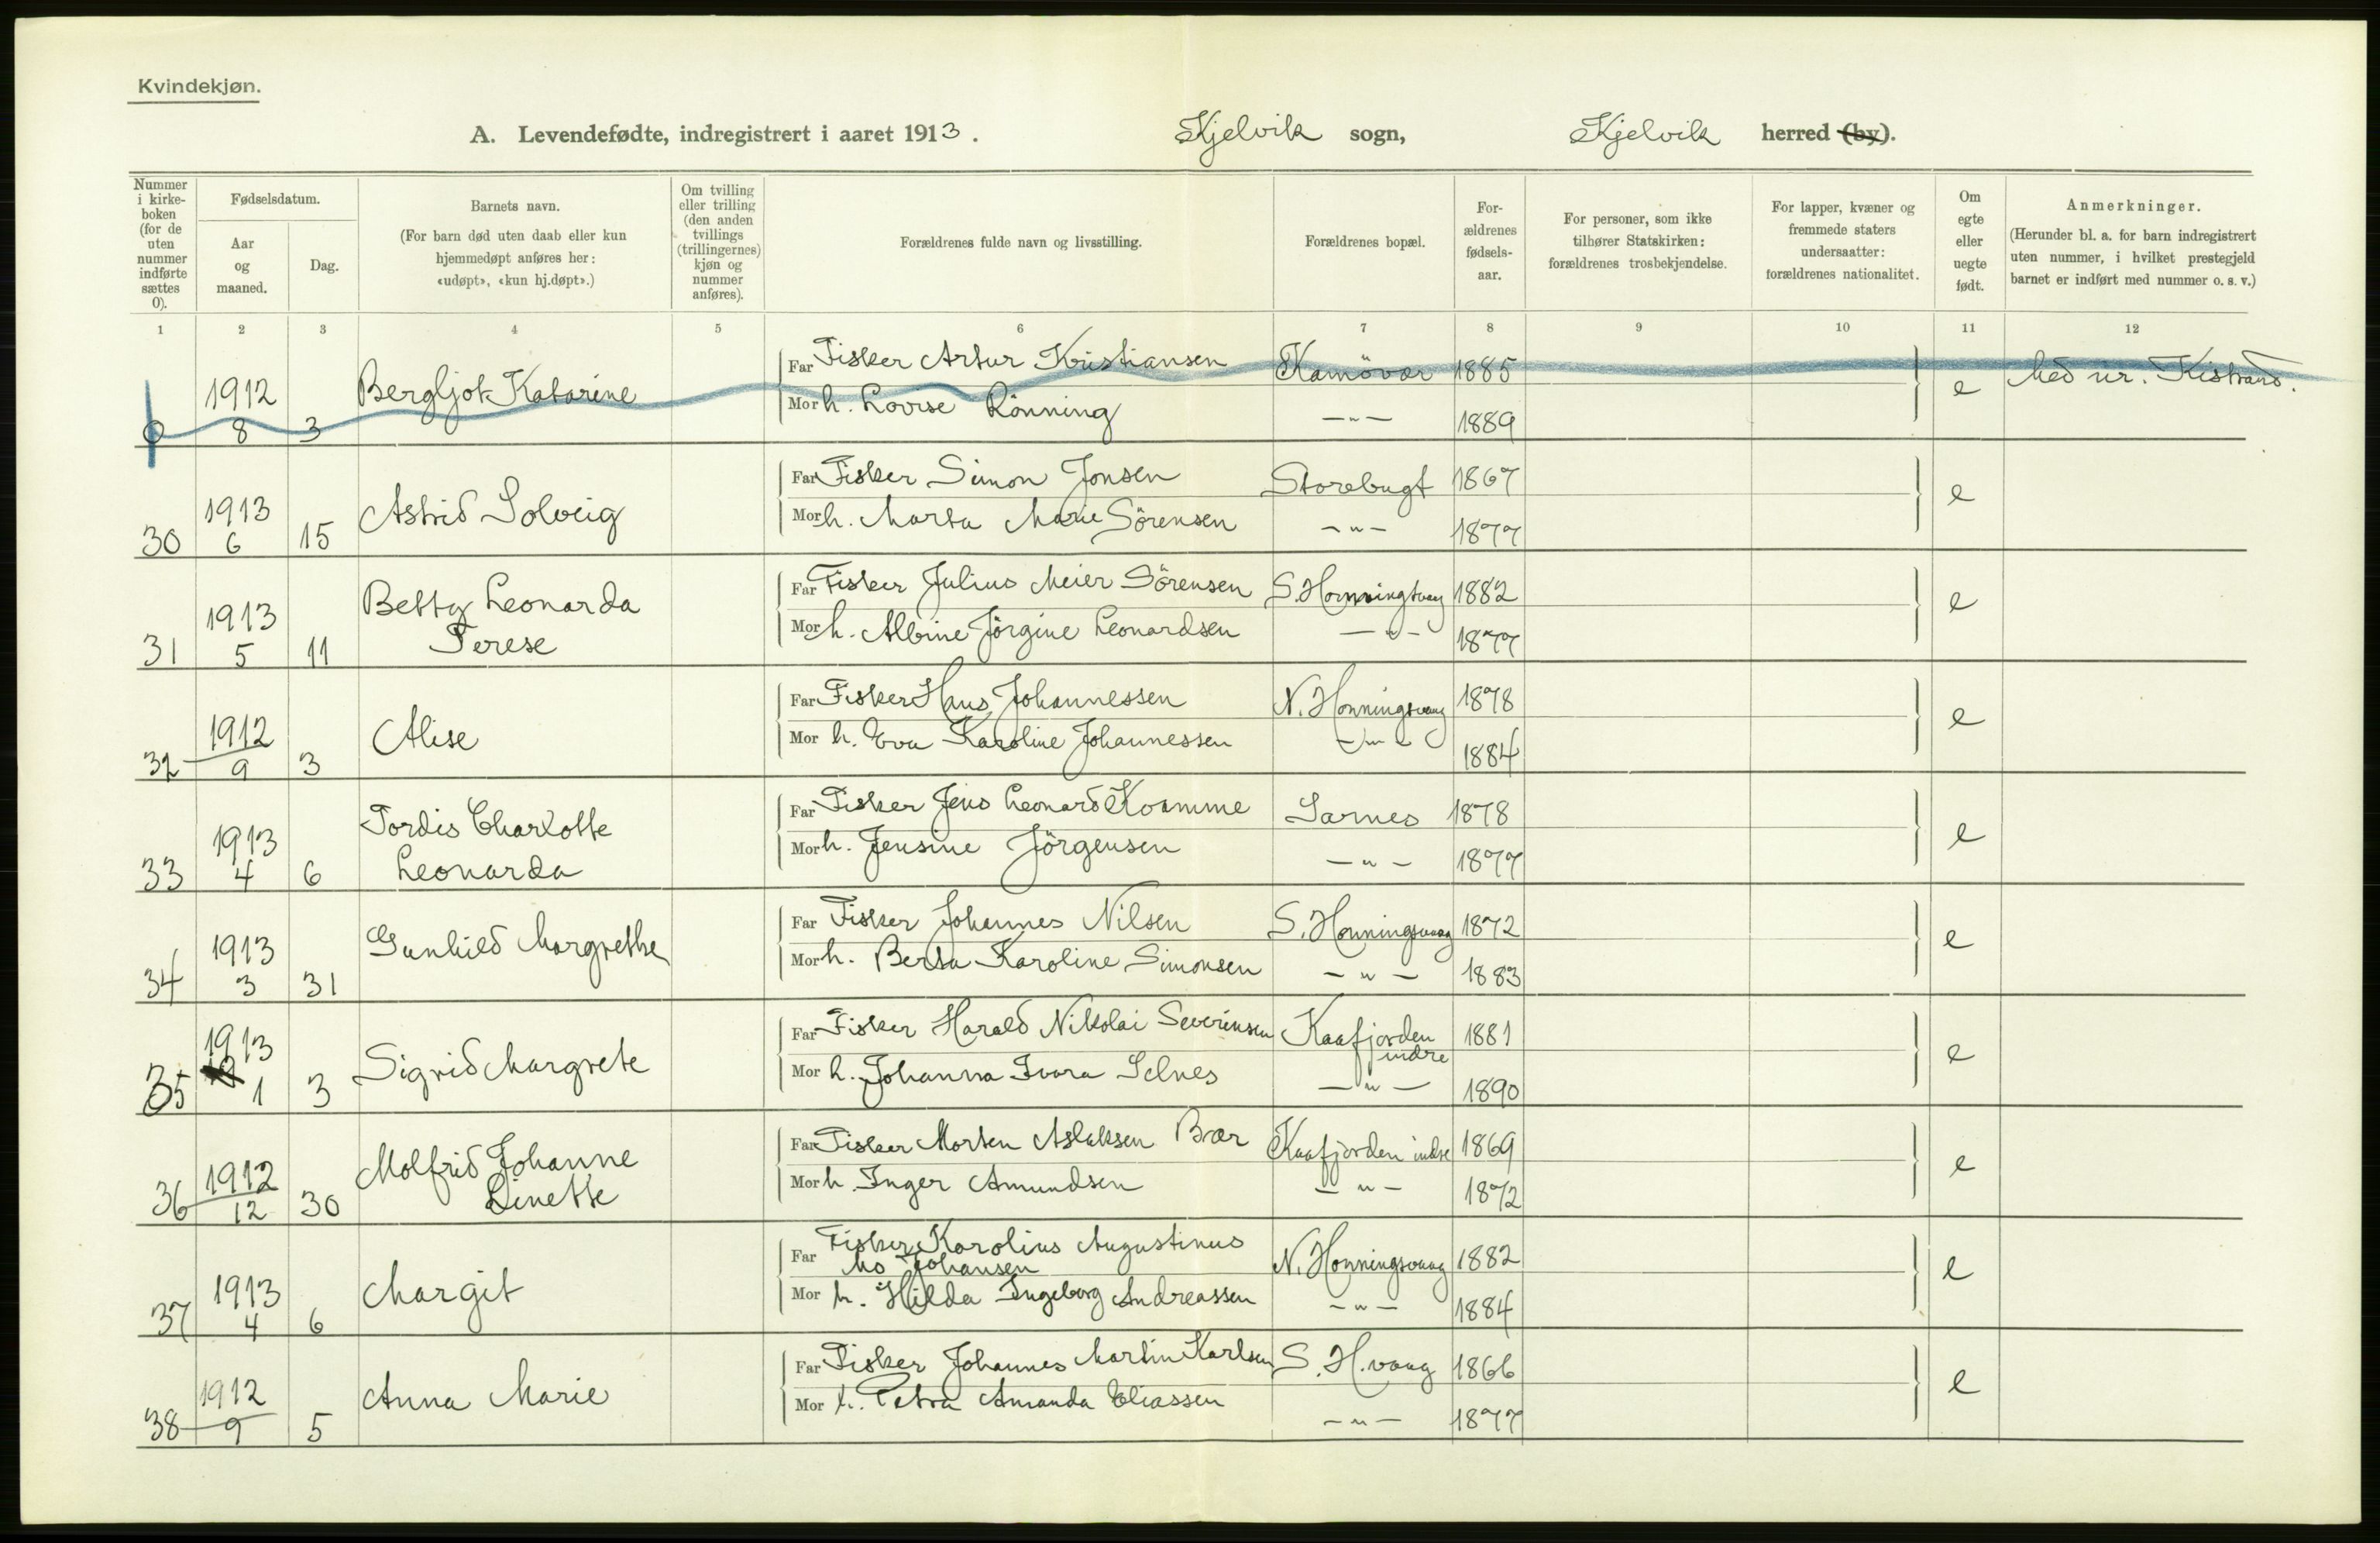 Kvindekjøn.
A. Levendefødte, indregistrert i aaret 1913. Kjelvik sogn, Kjelvik herred (by).
Nummer i kirke-boken (for de uten nummer indførte sættes 0).
Fødselsdatum.
Aar og maaned.
Dag.
Barnets navn.
(For barn død uten daab eller kun hjemmedøpt anføres her: «udøpt», «kun hj.døpt».)
Om tvilling eller trilling (den anden tvillings (trillingernes) kjøn og nummer anføres).
Forældrenes fulde navn og livsstilling.
Forældrenes bopæl.
For-ældrenes fødsels-aar.
For personer, som ikke tilhører Statskirken: forældrenes trosbekjendelse.
For lapper, kvæner og fremmede staters undersaatter: forældrenes nationalitet.
Om egte eller uegte født.
Anmerkninger.
(Herunder bl. a. for barn indregistrert uten nummer, i hvilket prestegjeld barnet er indført med nummer o. s. v.)
1 2 3 4 5 6 7 8 9 10 11 12
0 1912 8 3 Bergljot Katarine Far Fisker Artur Kristiansen Kamövær 1885 e Med nr. Kistrand.
Mor h. Lovise Rönning -"- 1889
30 1913 6 15 Astrid Solveig Far Fisker Simon Jonsen Storebugt 1867 e
Mor h. Marta Marie Sörensen -"- 1877
31 1913 5 11 Betty Leonarda Terese Far Fisker Julius Meier Sörensen S. Honningsvaag 1882 e
Mor h. Albine Jörgine Leonardsen -"- 1877
32 1912 9 3 Alise Far Fisker Hans Johannessen N. Honningsvaag 1878 e
Mor h. Eva Karoline Johannessen -"- 1884
33 1913 4 6 Tordis Charlotte Leonarda Far Fisker Jens Leonard Sarnes 1878 e
Mor h. Jensine Jörgensen -"- 1877
34 1913 3 31 Gunhild Margrethe Far Fisker Johannes Nilsen S. Honningsvaag 1872 e
Mor h. Berta Karoline Simonsen -"- 1883
35 1913 1 3 Sigrid Margrete Far Fisker Harald Nikolai Severinsen Kaafjorden indre 1881 e
Mor h. Johanna Ivara Selnes -"- 1890
36 1912 12 30 Molfrid Johanne Linette Far Fisker Morten Aslaksen Bær Kaafjorden indre 1869 e
Mor h. Inger Amundsen -"- 1872
37 1913 4 6 Margit Far Fisker Karolius Augustinus Mo Johansen N. Honningsvaag 1882 e
Mor h. Hilda Ingeborg Andreassen -"- 1884
38 1912 9 5 Anna Marie Far Fisker Johannes Martin Karlsen S. H.vaag 1866 e
Mor h. Petra Amanda Eliassen -"- 1877